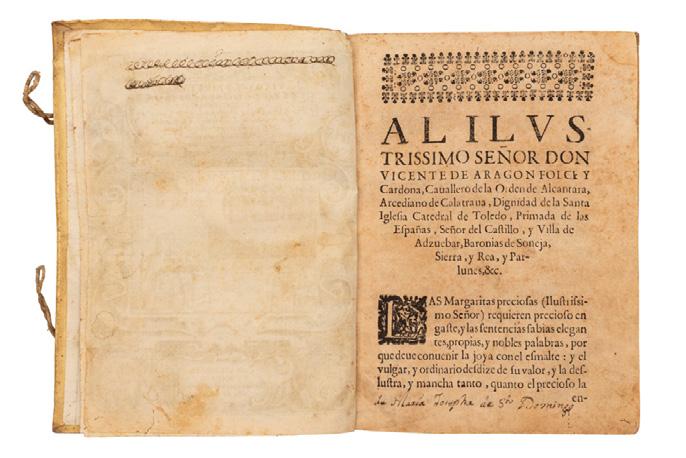 ALILVS-
TRISSIMO SEÑOR DON
VICENTE DE ARAGON FOLCE Y
Cardona, Cauallero de la Orden de Alcantara,
Arcediano de Calatraua, Dignidad de la Santa
Iglesia Catedral de Toledo, Primada de las
Españas, Señor del Castillo, y Villa de
Adzuebar, Baronias de Soneja,
Sierra, y Rea, y Par-
lunes,&c.
LAS Margaritas preciosas (Ilustrissi-
mo Señor) requieren precioso en
gaste, y las sentencias sabias elegan
tes, propias, y nobles palabras, por
que deue conuenir la joya con el esmalte: y el
vulgar, y ordinario desdize de su valor, y la des-
lustra, y mancha tanto, quanto el precioso la
en-
de Maria Josepha de Sto Domingo